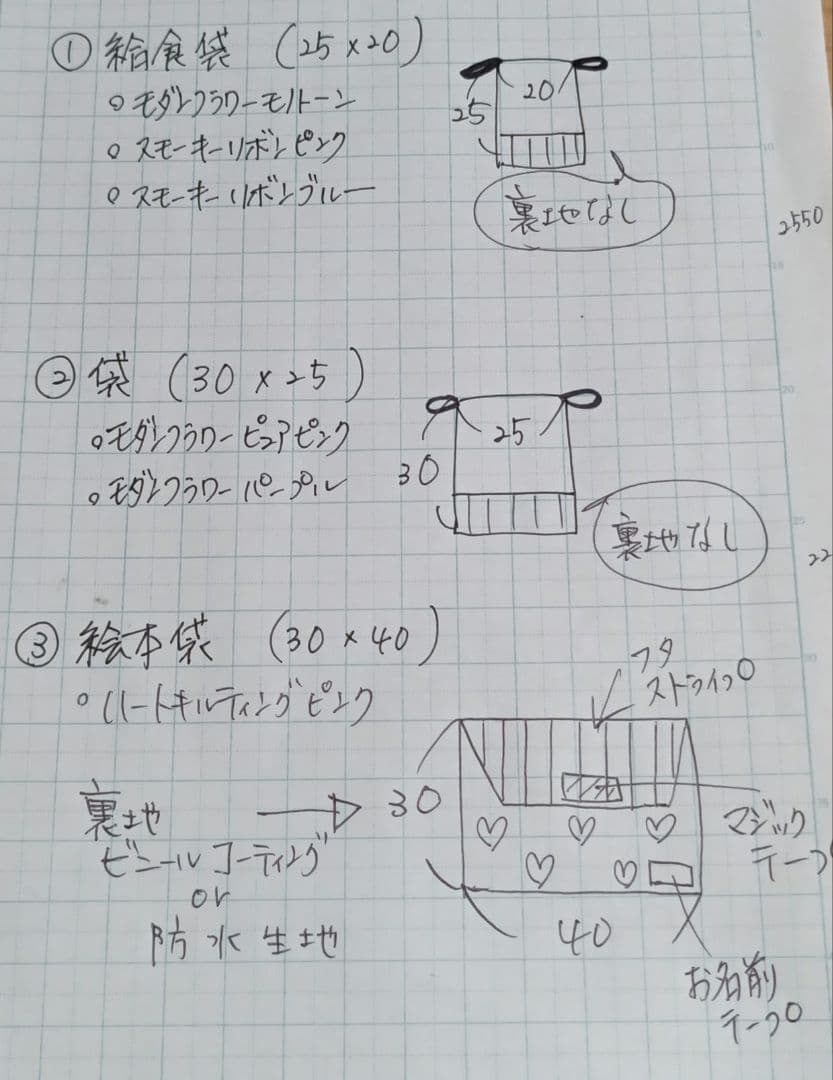 ① 給食袋 (25×20)
○ モダンフラワーモノトーン
○ スモーキーリボンピンク
○ スモーキーリボンブルー
20
25
裏地なし
2550
② 袋 (30×25)
○モダンフラワーピュアピンク
○モダンフラワーパープル
25
30
裏地なし
22
③ 絵本袋 (30×40)
○ハートキルティングピンク
フタ
ストライプ
30
裏地
ビニールコーティング
or
防水生地
マジック
テープ
40
お名前
テープ